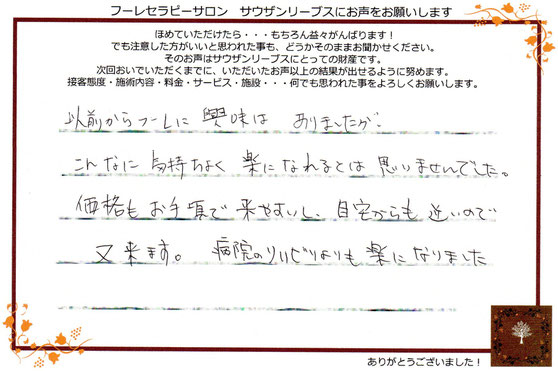 フーレセラピーサロン　サウザンリーブスにお声をお願いします
ほめていただけたら・・・もちろん益々がんばります！
でも注意した方がいいと思われた事も、どうかそのままお聞かせください。
そのお声はサウザンリーブスにとっての財産です。
次回おいでいただくまでに、いただいたお声以上の結果が出せるように努めます。
接客態度・施術内容・料金・サービス・施設・・・何でも思われた事をよろしくお願いします。
以前からフーレに 興味は ありましたが、
こんなに 気持ちよく 楽になれるとは 思いませんでした。
価格も お手頃で 来やすいし、自宅からも 近いので
又 来ます。 病院のリハビリよりも 楽に なりました
ありがとうございました！